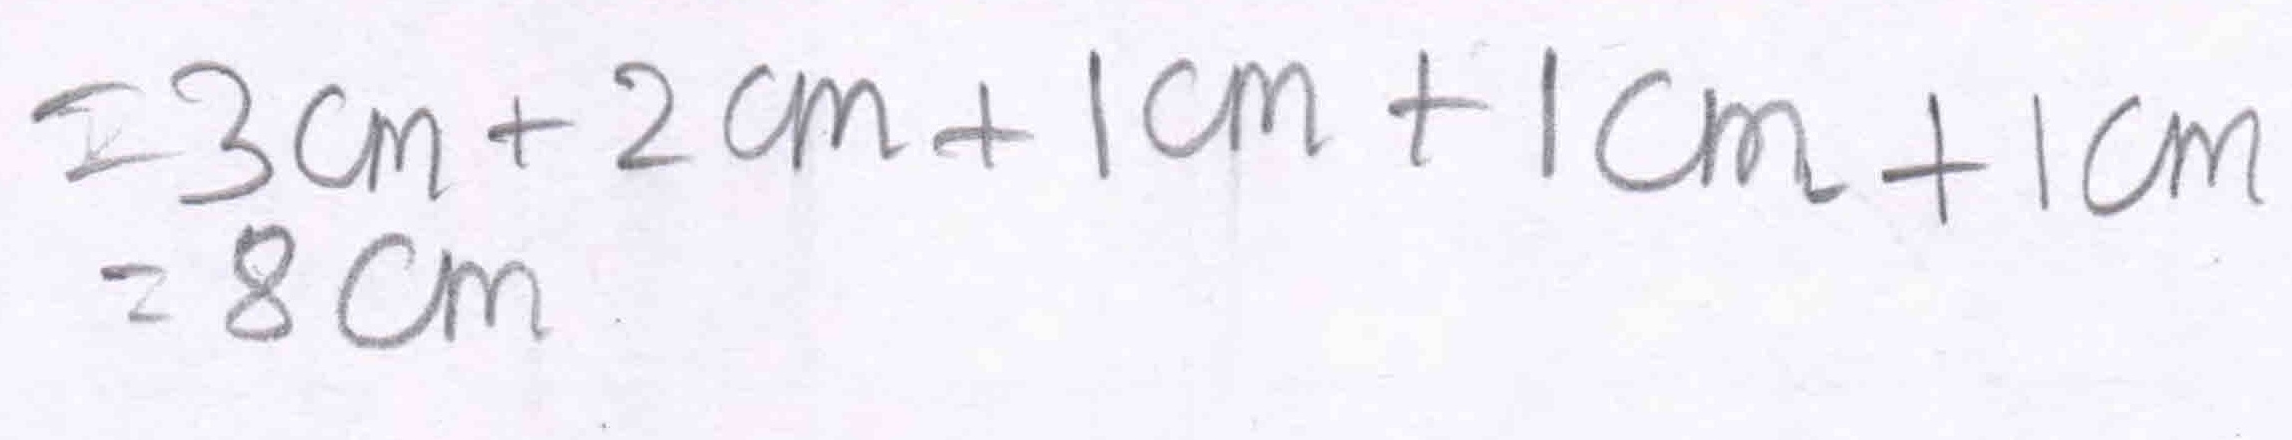 =3cm+2cm+1cm+1cm+1cm
=8cm